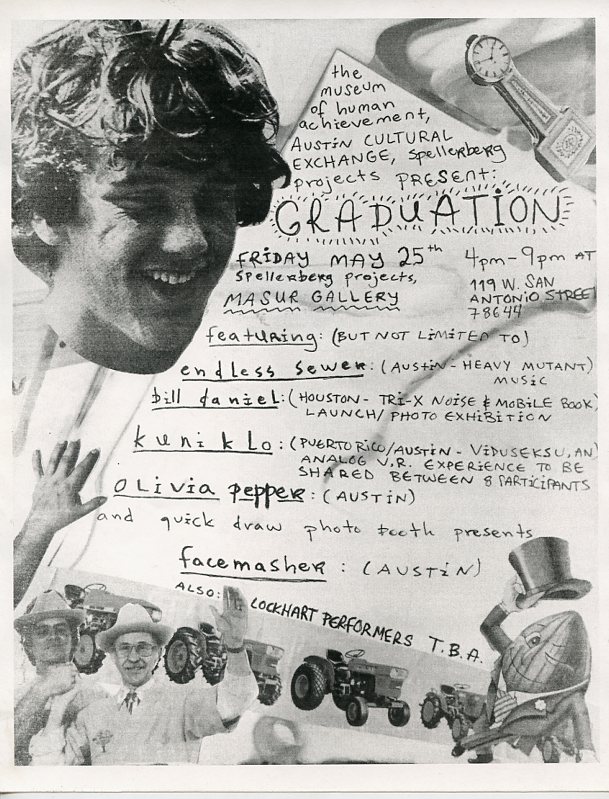 the
museum
of human
achievement,
AUSTIN CULTURAL
EXCHANGE, Spellerberg
projects PRESENT:
GRADUATION
FRIDAY MAY 25th 4pm-9pm AT
Spellerberg projects,
MASUR GALLERY
119 W. SAN
ANTONIO STREET
78644
featuring: (BUT NOT LIMITED TO)
endless sewer: (AUSTIN - HEAVY MUTANT)
MUSIC
bill daniel: (HOUSTON - TRI-X NOISE & MOBILE BOOK)
LAUNCH/PHOTO EXHIBITION
kuniklo: (PUERTO RICO/AUSTIN - VIDUSEKSU, AN)
ANALOG V.R. EXPERIENCE TO BE
SHARED BETWEEN 8 PARTICIPANTS
OLIVIA pepper: (AUSTIN)
and quick draw photo booth presents
facemasher: (AUSTIN)
ALSO: LOCKHART PERFORMERS T.B.A.